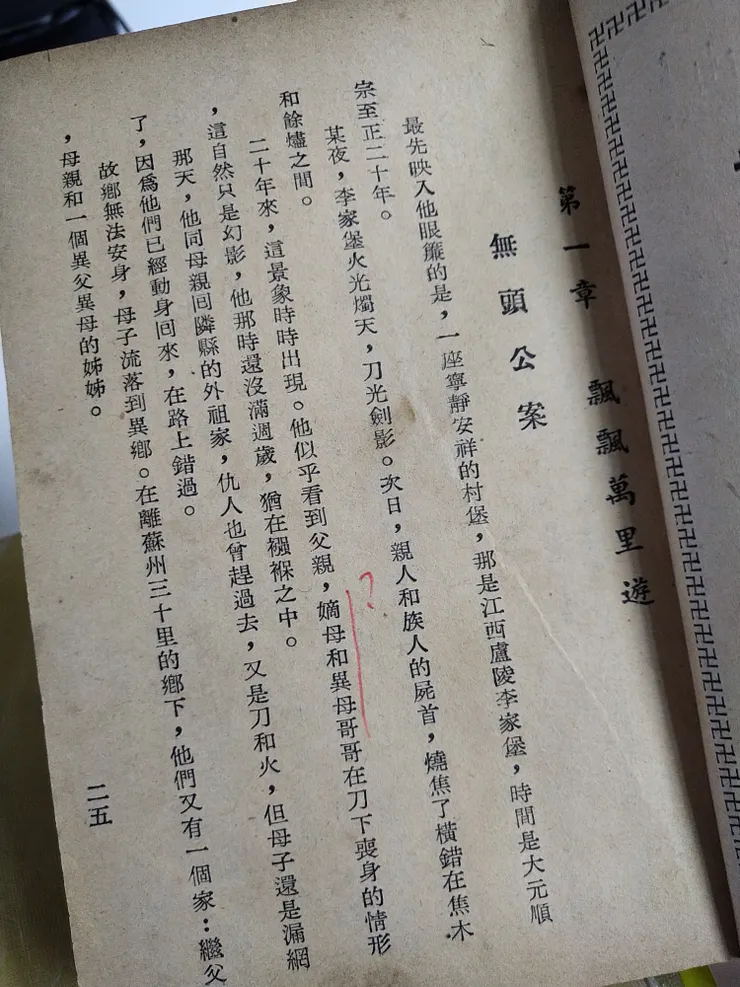 第一章　飄飄萬里遊
無頭公案
最先映入他眼簾的是，一座寧靜安祥的村堡，那是江西盧陵李家堡，時間是大元順
宗至正二十年。
某夜，李家堡火光燭天，刀光劍影。次日，親人和族人的屍首，燒焦了橫錯在焦木
和餘燼之間。
二十年來，這景象時時出現。他似乎看到父親，嫡母和異母哥哥在刀下喪身的情形
，這自然只是幻影，他那時還沒滿週歲，猶在襁褓之中。
那天，他同母親回隣縣的外祖家，仇人也曾趕過去，又是刀和火，但母子還是漏網
了，因爲他們已經動身回來，在路上錯過。
故鄉無法安身，母子流落到異鄉。在離蘇州三十里的鄉下，他們又有一個家：繼父
，母親和一個異父異母的姊姊。
二五
?